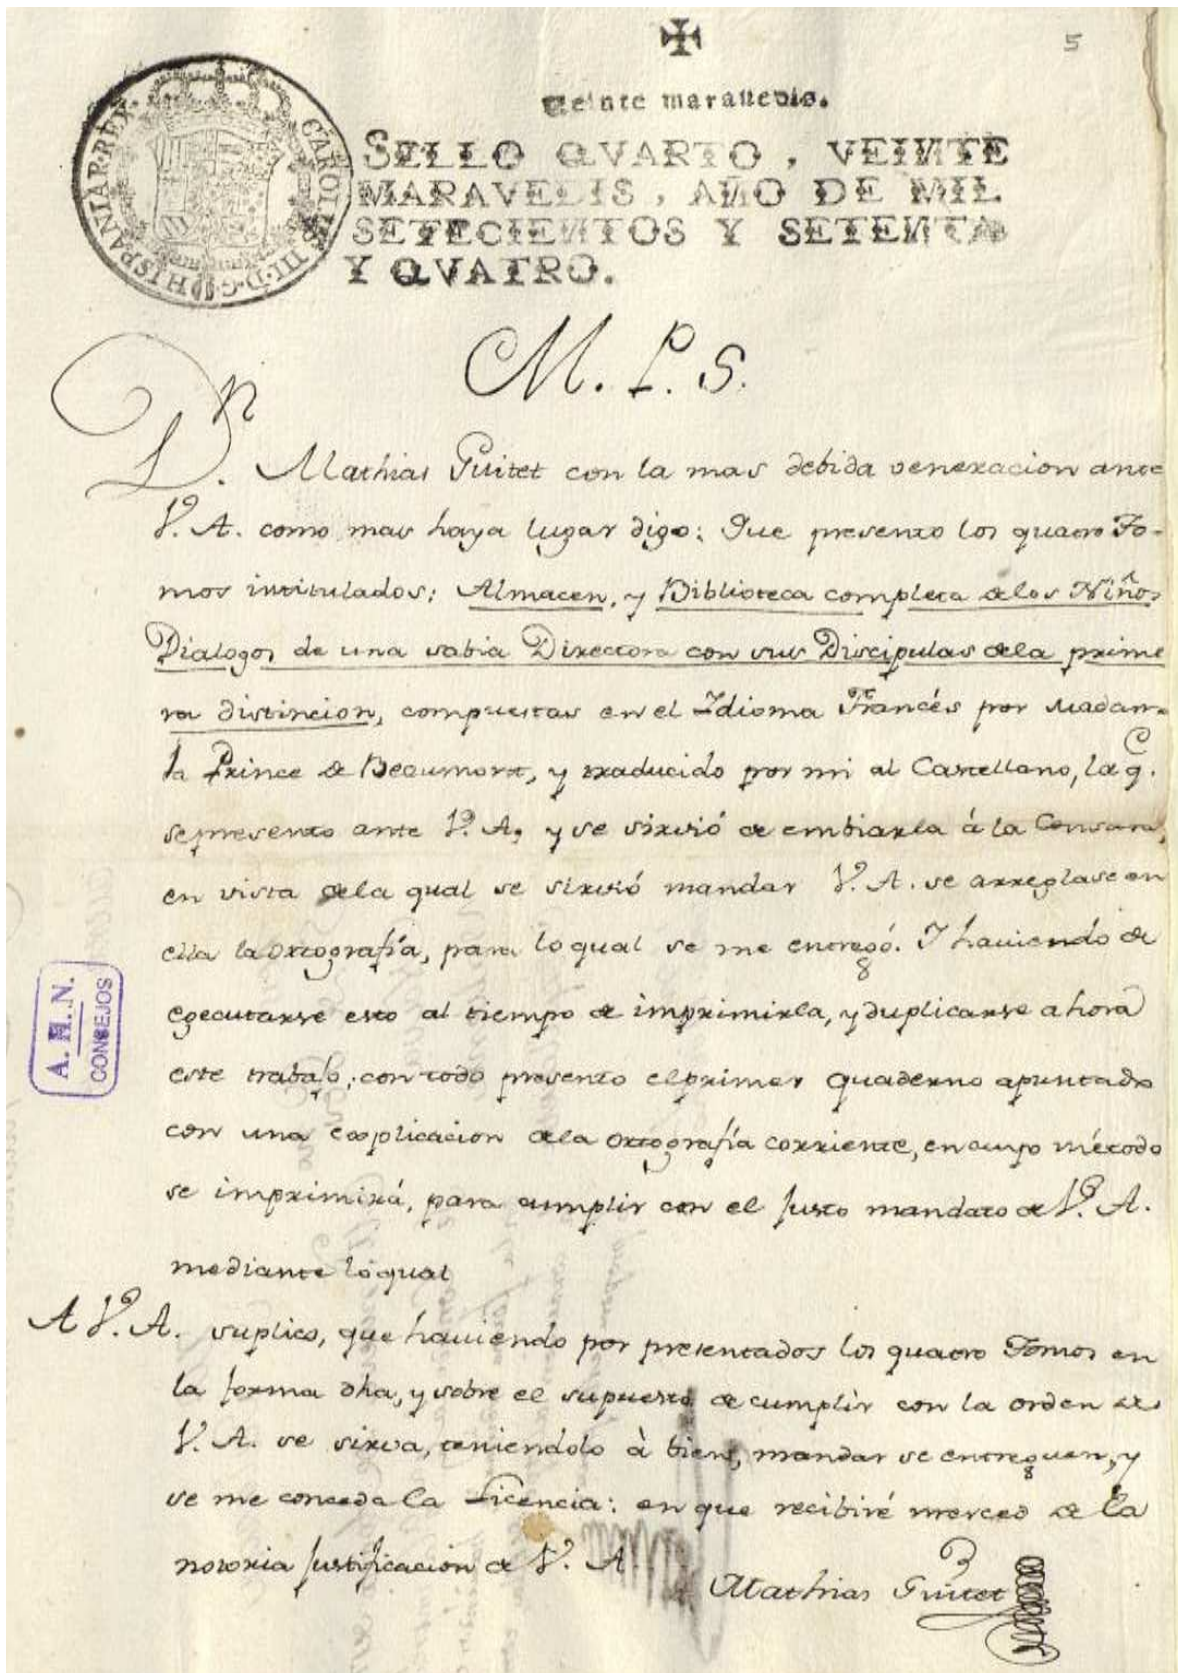 5
Veinte maravedis.
SELLO QVARTO, VEINTE
MARAVEDIS, AÑO DE MIL
SETECIENTOS Y SETENTA
Y QVATRO.
CAROLUS III. D. G. HISPANIAR. REX.
M. P. S.
Dn. Mathias Guitet con la mas debida veneracion ante
V. A. como mas haya lugar digo: Que presento los quatro To-
mos intitulados: Almacen, y Biblioteca completa de los Niños,
Dialogos de una sabia Directora con sus Discipulas de la prime
ra distincion, compuestas en el Idioma Francés por Madama
la Prince de Beaumont, y traducido por mi al Castellano, la q.e
se presento ante V. A. y se sirvió de embiarla à la Censura,
en vista de la qual se sirvió mandar V. A. se arreglase en
ella la ortografía, para lo qual se me entregó. I haviendo de
egecutarse esto al tiempo de imprimirla, y duplicarse ahora
este trabajo; con todo presento el primer quaderno apuntado
con una explicacion de la ortografía corriente, en cuyo método
se imprimirá, para cumplir con el justo mandato de V. A.
mediante lo qual
A V. A. suplico, que haviendo por presentados los quatro Tomos en
la forma dha, y sobre el supuesto de cumplir con la orden de
V. A. se sirva, teniendolo à bien, mandar se entreguen, y
se me conceda la Licencia: en que recibiré merced de la
notoria justificacion de V. A.
Mathias Guitet
A. H. N.
CONSEJOS